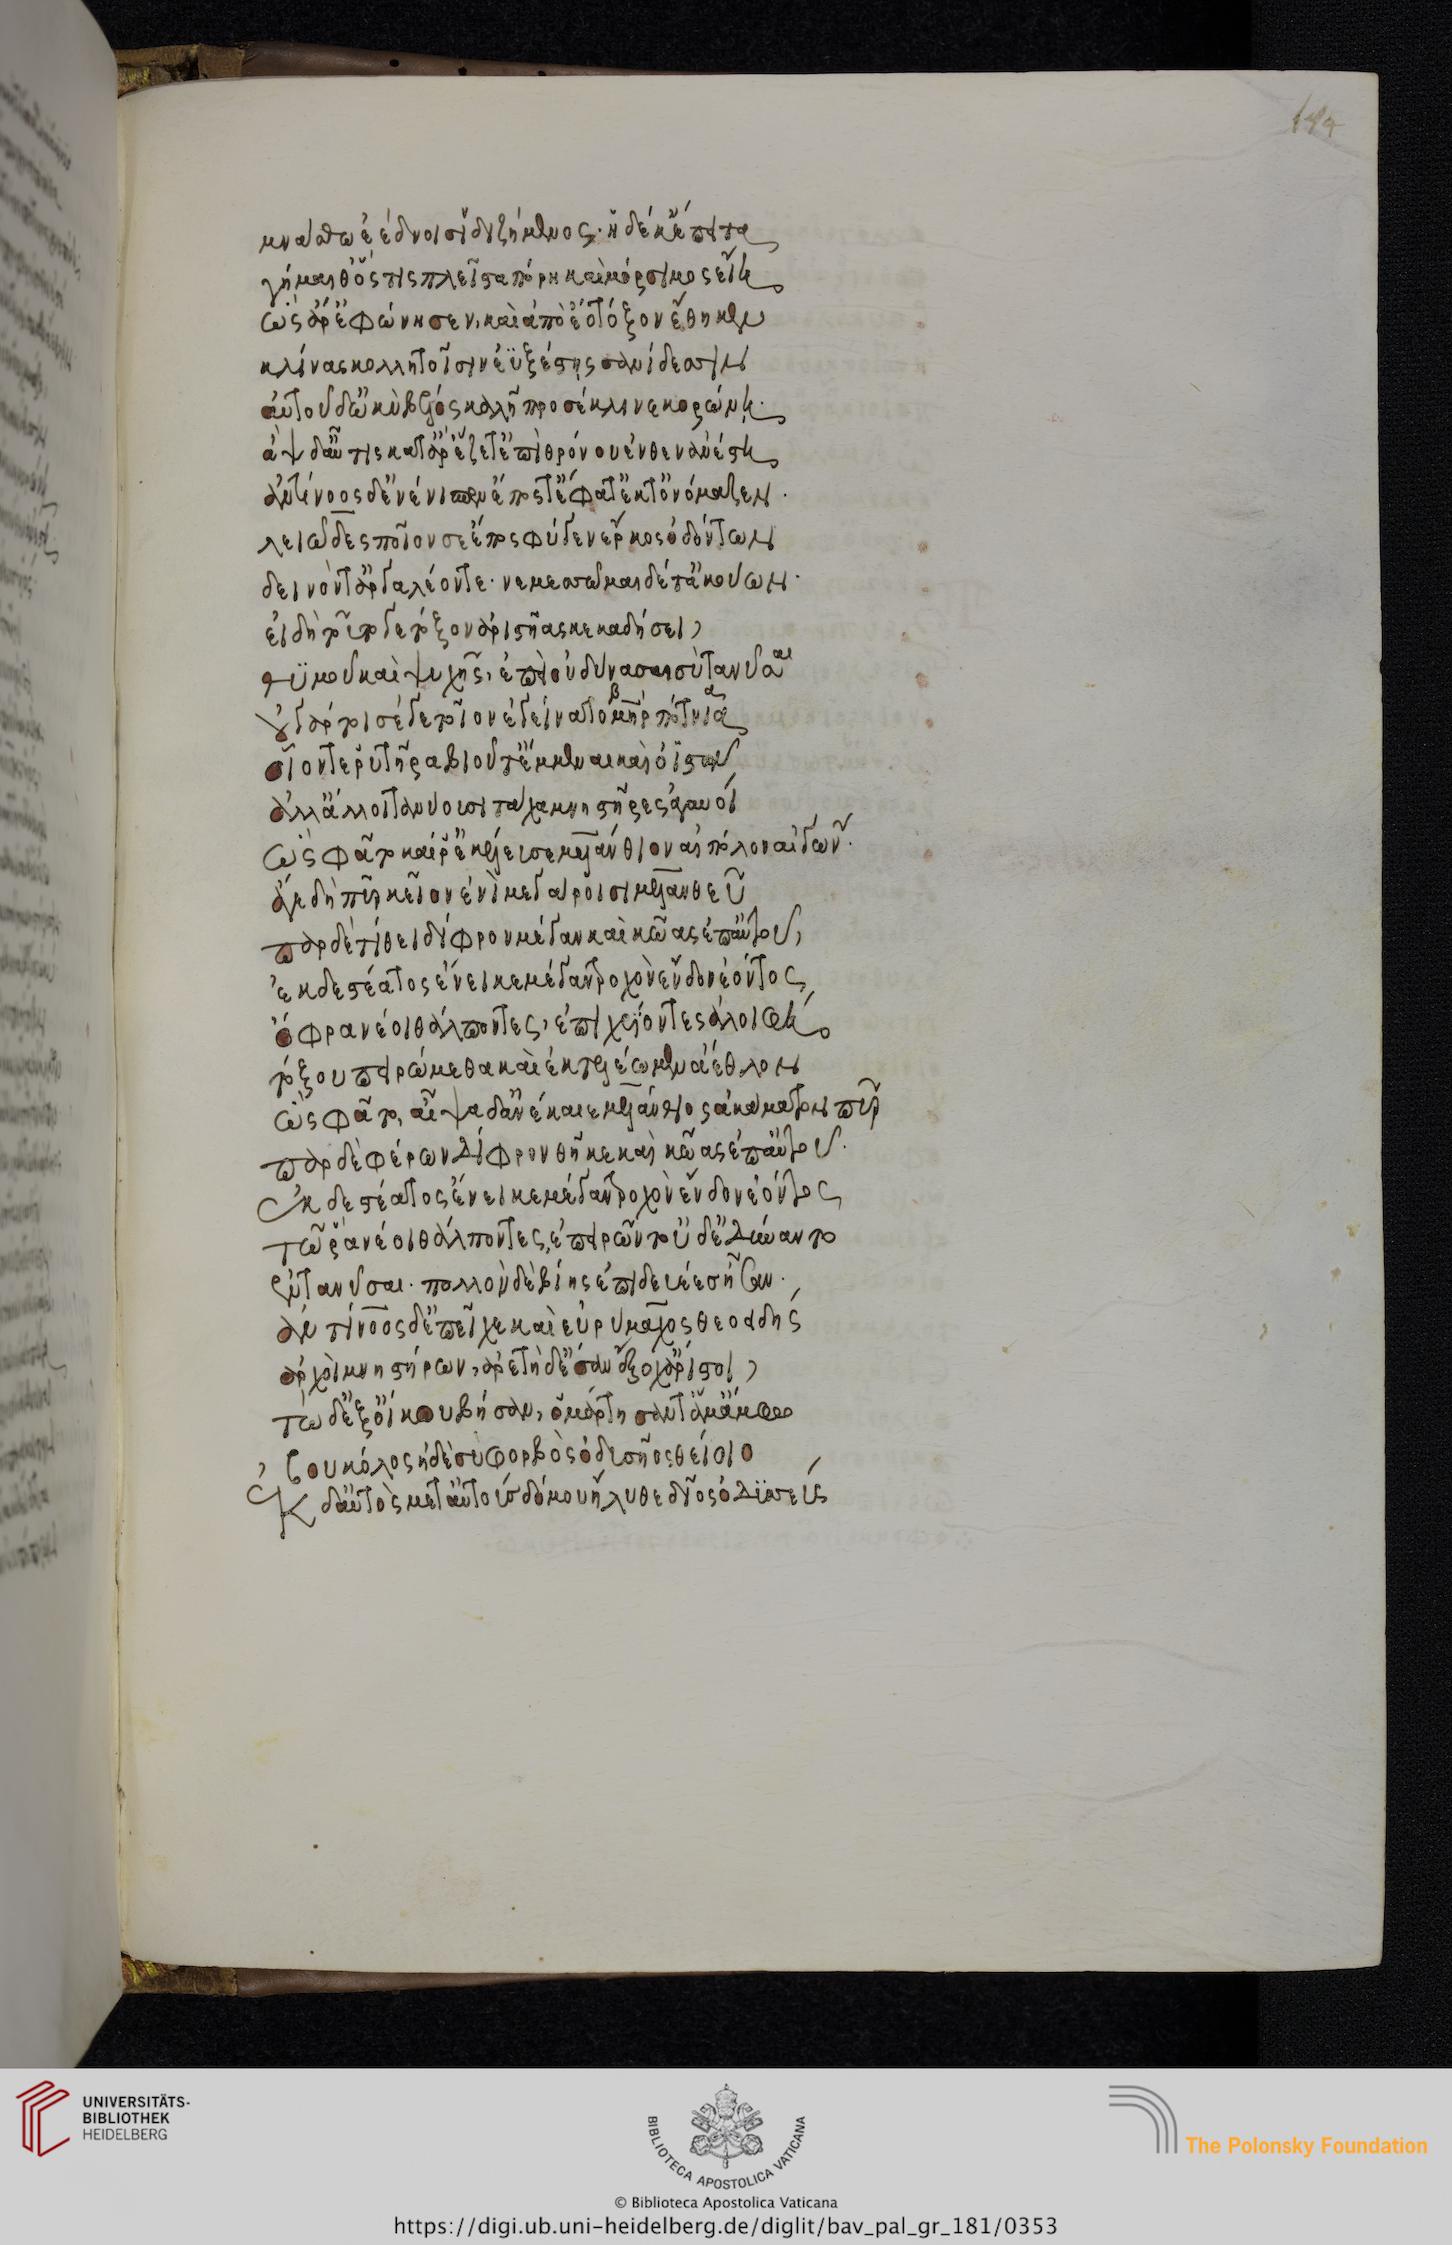 μνάσθω ἐέδνοισιν διζήμενος· ἡ δέ κ' ἔπειτα
γήμαιθ' ὅς τις πλεῖστα πόρη καὶ μόρσιμος εἴη
ὣς ἄρ' ἐφώνησεν, καὶ ἀπὸ ἕο τόξον ἔθηκεν
κλίνας κολλητοῖσιν ἐϋξέστης σανίδεσσιν
αὐτοῦ δ' ὠκὺ βέλος καλῆ προσέκλινε κορώνη·
ἀψ δ' αὖτις κατ' ἄρ' ἕζετ' ἐπὶ θρόνου ἔνθεν ἀνέστη
ἀντίνοος δ' ἐνένιπεν ἔπος τ' ἔφατ' ἔκ τ' ὀνόμαζεν·
λειῶδες ποῖον σε ἔπος φύγεν ἕρκος ὀδόντων
δεινόν τ' ἀργαλέον τε· νεμεσσῶμαι δέ τ' ἀκούων·
εἰ δὴ τοῦτο γε τόξον ἀριστῆας κεκαδήσει,
θϋμοῦ καὶ ψυχῆς, ἐπεὶ οὐ δύνασαι σὺ τανύσαι
οὐ γάρ τοι σέ γε τοῖον ἐγείνατο μήτηρ πότνια
οἷον τε ῥυτῆρα βιοῦ τ' ἔμμεναι καὶ ὀϊστῶν
ἀλλ' ἄλλοι τανύουσι τάχα μνηστῆρες ἀγαυοί
ὣς φάτο καί ῥ' ἐκέλευσε μελάνθιον αἰπόλον αἰγῶν·
ἄγρει δὴ πῦρ κεῖον ἐνὶ μεγάροισι μελανθεῦ
παρ δὲ τίθει δίφρον μέγαν καὶ κῶας ἐπ' αὐτοῦ,
ἐκ δὲ στέατος ἔνεικε μέγαν τροχὸν ἔνδον ἐόντος
ὄφρα νέοι θάλποντες, ἐπιχρίοντες ἀλοιφῆ
τόξου πειρώμεθα καὶ ἐκτελέωμεν ἄεθλον
ὣς φάτο, αἶψα δ' ἀνέκαιε μελάνθιος ἀκάματον πῦρ
παρ δὲ φέρων δίφρον θῆκε καὶ κῶας ἐπ' αὐτοῦ·
ἐκ δὲ στέατος ἔνεικε μέγαν τροχὸν ἔνδον ἐόντος
τῶ ῥα νέοι θάλποντες, ἐπειρῶντο οὐδ' ἐδύναντο
ἐντανύσαι· πολλὸν δὲ βίης ἐπιδευέες ἦσαν·
ἀντίνοος δ' ἐπεῖχε καὶ εὐρύμαχος θεοειδής
ἀρχοὶ μνηστήρων, ἀρετῆ δ' ἔσαν ἔξοχ' ἄριστοι,
τὼ δ' ἐξ οἴκου βήσαν, ὁμαρτήσαντ' ἅμ' ἄμφω
βουκόλος ἠδὲ συφορβὸς ὀδυσσῆος θείοιο
ἐκ δ' αὐτὸς μετ' αὐτοὺς δόμου ἤλυθε δῖος ὀδυσσεύς
UNIVERSITÄTS-
BIBLIOTHEK
HEIDELBERG
BIBLIOTECA APOSTOLICA VATICANA
The Polonsky Foundation
© Biblioteca Apostolica Vaticana
https://digi.ub.uni-heidelberg.de/diglit/bav_pal_gr_181/0353